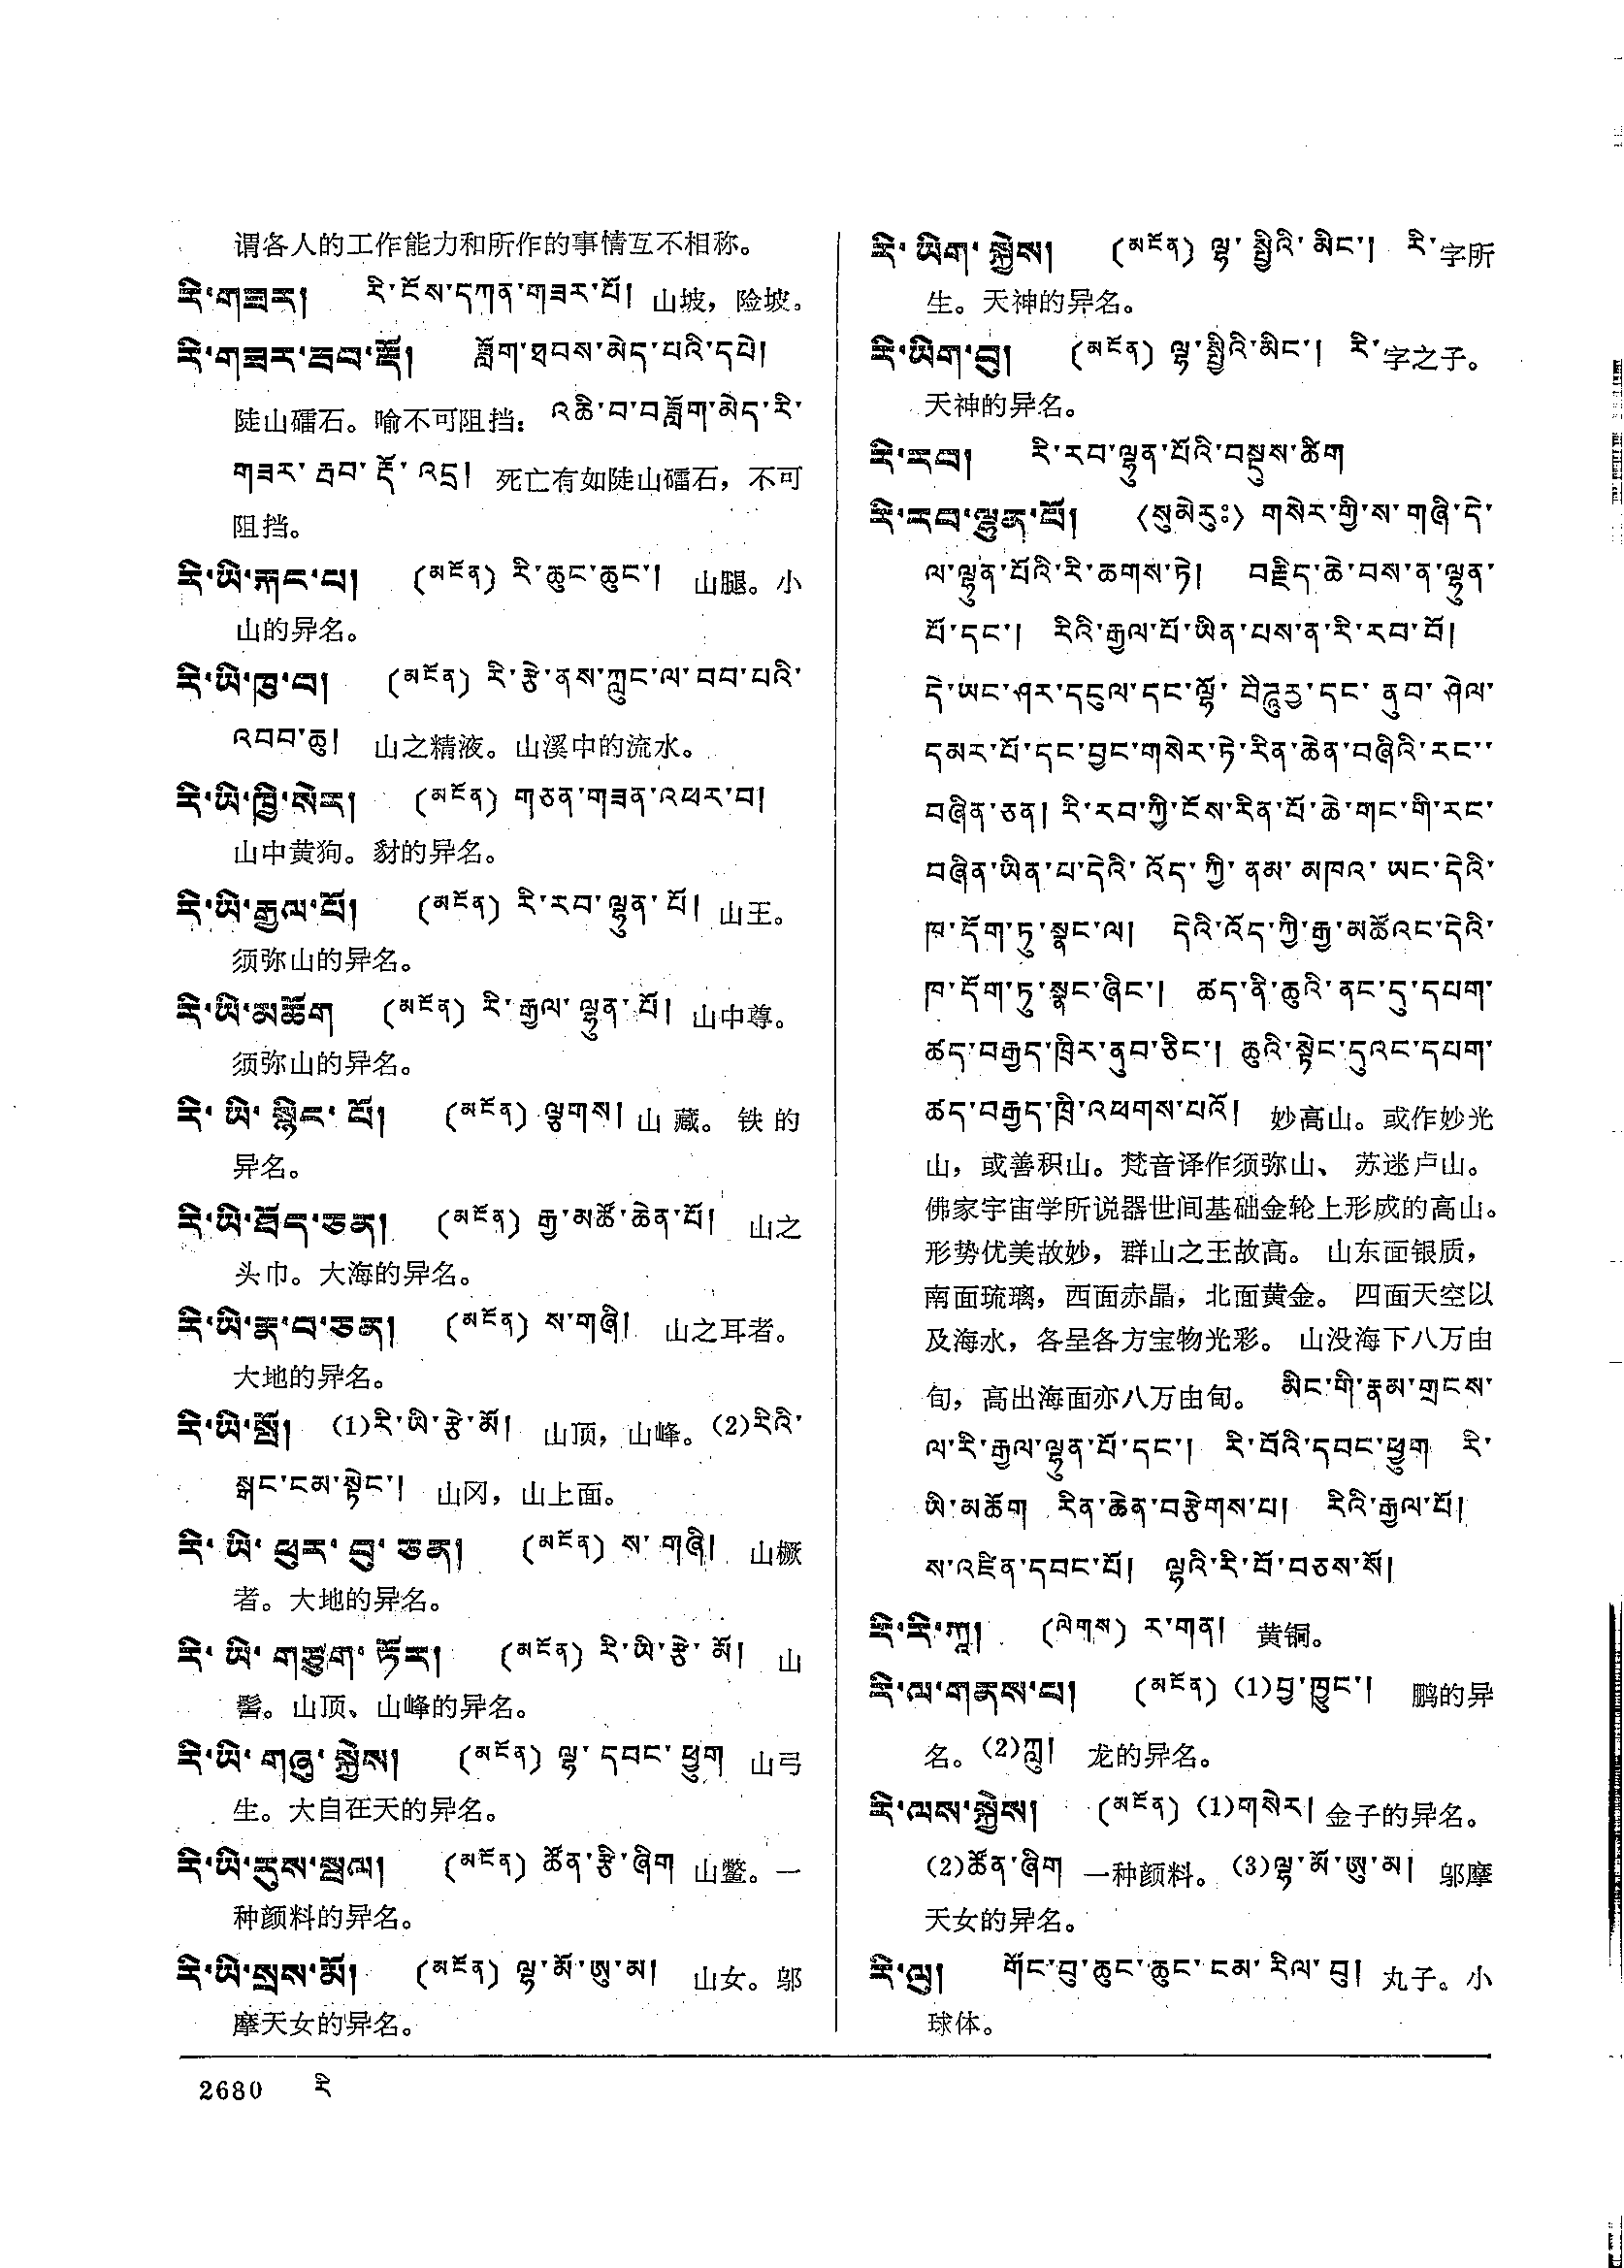 谓各人的工作能力和所作的事情互不相称。
རི་གཟར། རི་ངོས་དཀན་གཟར་པོ། 山坡，险坡。
རི་གཟར་རྦབ་རྡོ། ཟློག་ཐབས་མེད་པའི་དཔེ།
陡山礌石。喻不可阻挡：འཆི་བ་བཟློག་མེད་རི་
གཟར་རྦབ་རྡོ་འདྲ། 死亡有如陡山礌石，不可
阻挡。
རི་ཡི་རྐང་པ། (མངོན) རི་ཆུང་ཆུང་། 山腿。小
山的异名。
རི་ཡི་ཁུ་བ། (མངོན) རི་རྩེ་ནས་ཀླུང་ལ་བབ་པའི་
འབབ་ཆུ། 山之精液。山溪中的流水。
རི་ཡི་ཁྱི་སེར། (མངོན) གཅན་གཟན་འཕར་བ།
山中黄狗。豺的异名。
རི་ཡི་རྒྱལ་པོ། (མངོན) རི་རབ་ལྷུན་པོ། 山王。
须弥山的异名。
རི་ཡི་མཆོག (མངོན) རི་རྒྱལ་ལྷུན་པོ། 山中尊。
须弥山的异名。
རི་ཡི་སྙིང་པོ། (མངོན) ལྕགས། 山藏。铁的
异名。
རི་ཡི་ཐོད་ཅན། (མངོན) རྒྱ་མཚོ་ཆེན་པོ། 山之
头巾。大海的异名。
རི་ཡི་རྣ་བ་ཅན། (མངོན) ས་གཞི། 山之耳者。
大地的异名。
རི་ཡི་སྤོ། (1)རི་ཡི་རྩེ་མོ། 山顶，山峰。(2)རིའི་
སྒང་ངམ་སྟེང་། 山冈，山上面。
རི་ཡི་ཕུར་བུ་ཅན། (མངོན) ས་གཞི། 山橛
者。大地的异名。
རི་ཡི་གཙུག་ཏོར། (མངོན) རི་ཡི་རྩེ་མོ། 山
髻。山顶、山峰的异名。
རི་ཡི་གཞུ་སྐྱེས། (མངོན) ལྷ་དབང་ཕྱུག 山弓
生。大自在天的异名。
རི་ཡི་རུས་སྦལ། (མངོན) ཚོན་རྩི་ཞིག 山鳖。一
种颜料的异名。
རི་ཡི་སྲས་མོ། (མངོན) ལྷ་མོ་ཨུ་མ། 山女。邬
摩天女的异名。
རི་ཡིག་སྐྱེས། (མངོན) ལྷ་སྤྱིའི་མིང་། རི་字所
生。天神的异名。
རི་ཡིག་བུ། (མངོན) ལྷ་སྤྱིའི་མིང་། རི་字之子。
天神的异名。
རི་རབ། རི་རབ་ལྷུན་པོའི་བསྡུས་ཚིག
རི་རབ་ལྷུན་པོ། ⟨སུམེརུཿ⟩ གསེར་གྱི་ས་གཞི་དེ་
ལ་ལྷུན་པོའི་རི་ཆགས་ཏེ། བརྗིད་ཆེ་བས་ན་ལྷུན་
པོ་དང་། རིའི་རྒྱལ་པོ་ཡིན་པས་ན་རི་རབ་བོ།
དེ་ཡང་ཤར་དངུལ་དང་ལྷོ་བཻཌཱུརྱ་དང་ནུབ་ཤེལ་
དམར་པོ་དང་བྱང་གསེར་ཏེ་རིན་ཆེན་བཞིའི་རང་་
བཞིན་ཅན། རི་རབ་ཀྱི་ངོས་རིན་པོ་ཆེ་གང་གི་རང་
བཞིན་ཡིན་པ་དེའི་འོད་ཀྱི་ནམ་མཁའ་ཡང་དེའི་
ཁ་དོག་ཏུ་སྣང་ལ། དེའི་འོད་ཀྱི་རྒྱ་མཚོའང་དེའི་
ཁ་དོག་ཏུ་སྣང་ཞིང་། ཚད་ནི་ཆུའི་ནང་དུ་དཔག་
ཚད་བརྒྱད་ཁྲིར་ནུབ་ཅིང་། ཆུའི་སྟེང་དུའང་དཔག་
ཚད་བརྒྱད་ཁྲི་འཕགས་པའོ། 妙高山。或作妙光
山，或善积山。梵音译作须弥山、苏迷卢山。
佛家宇宙学所说器世间基础金轮上形成的高山。
形势优美故妙，群山之王故高。山东面银质，
南面琉璃，西面赤晶，北面黄金。四面天空以
及海水，各呈各方宝物光彩。山没海下八万由
旬，高出海面亦八万由旬。མིང་གི་རྣམ་གྲངས་
ལ་རི་རྒྱལ་ལྷུན་པོ་དང་། རི་བོའི་དབང་ཕྱུག རི་
ཡི་མཆོག རིན་ཆེན་བརྩེགས་པ། རིའི་རྒྱལ་པོ།
ས་འཛིན་དབང་པོ། ལྷའི་རི་བོ་བཅས་སོ།
རི་རི་ཀཱ། (ལེགས) ར་གན། 黄铜。
རི་ལ་གནས་པ། (མངོན) (1)བྱ་ཁྱུང་། 鹏的异
名。(2)ཀླུ། 龙的异名。
རི་ལས་སྐྱེས། (མངོན) (1)གསེར། 金子的异名。
(2)ཚོན་ཞིག 一种颜料。(3)ལྷ་མོ་ཨུ་མ། 邬摩
天女的异名。
རི་ལུ། གོང་བུ་ཆུང་ཆུང་ངམ་རིལ་བུ། 丸子。小
球体。
2680 རི